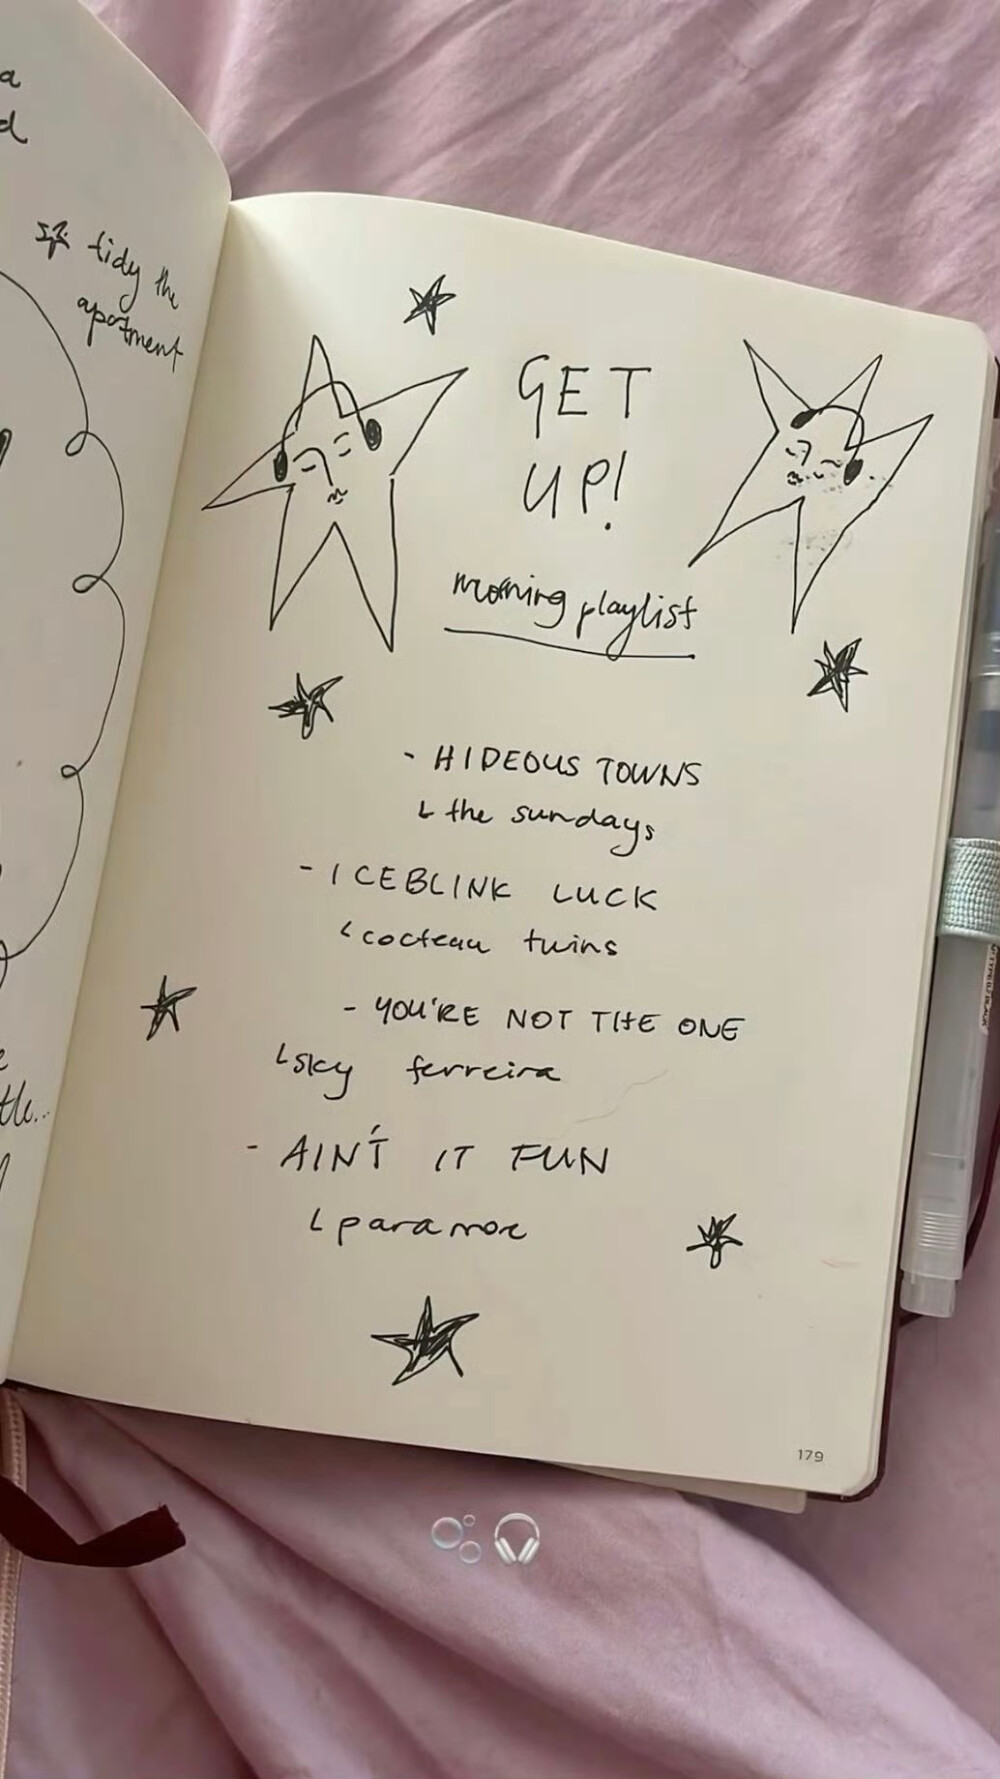 a
d
tidy the
apartment
tle...
GET
UP!
morning playlist
- HIDEOUS TOWNS
↳ the sundays
- ICEBLINK LUCK
↳ cocteau twins
- YOU'RE NOT THE ONE
↳ sky ferreira
- AIN'T IT FUN
↳ paramore
179